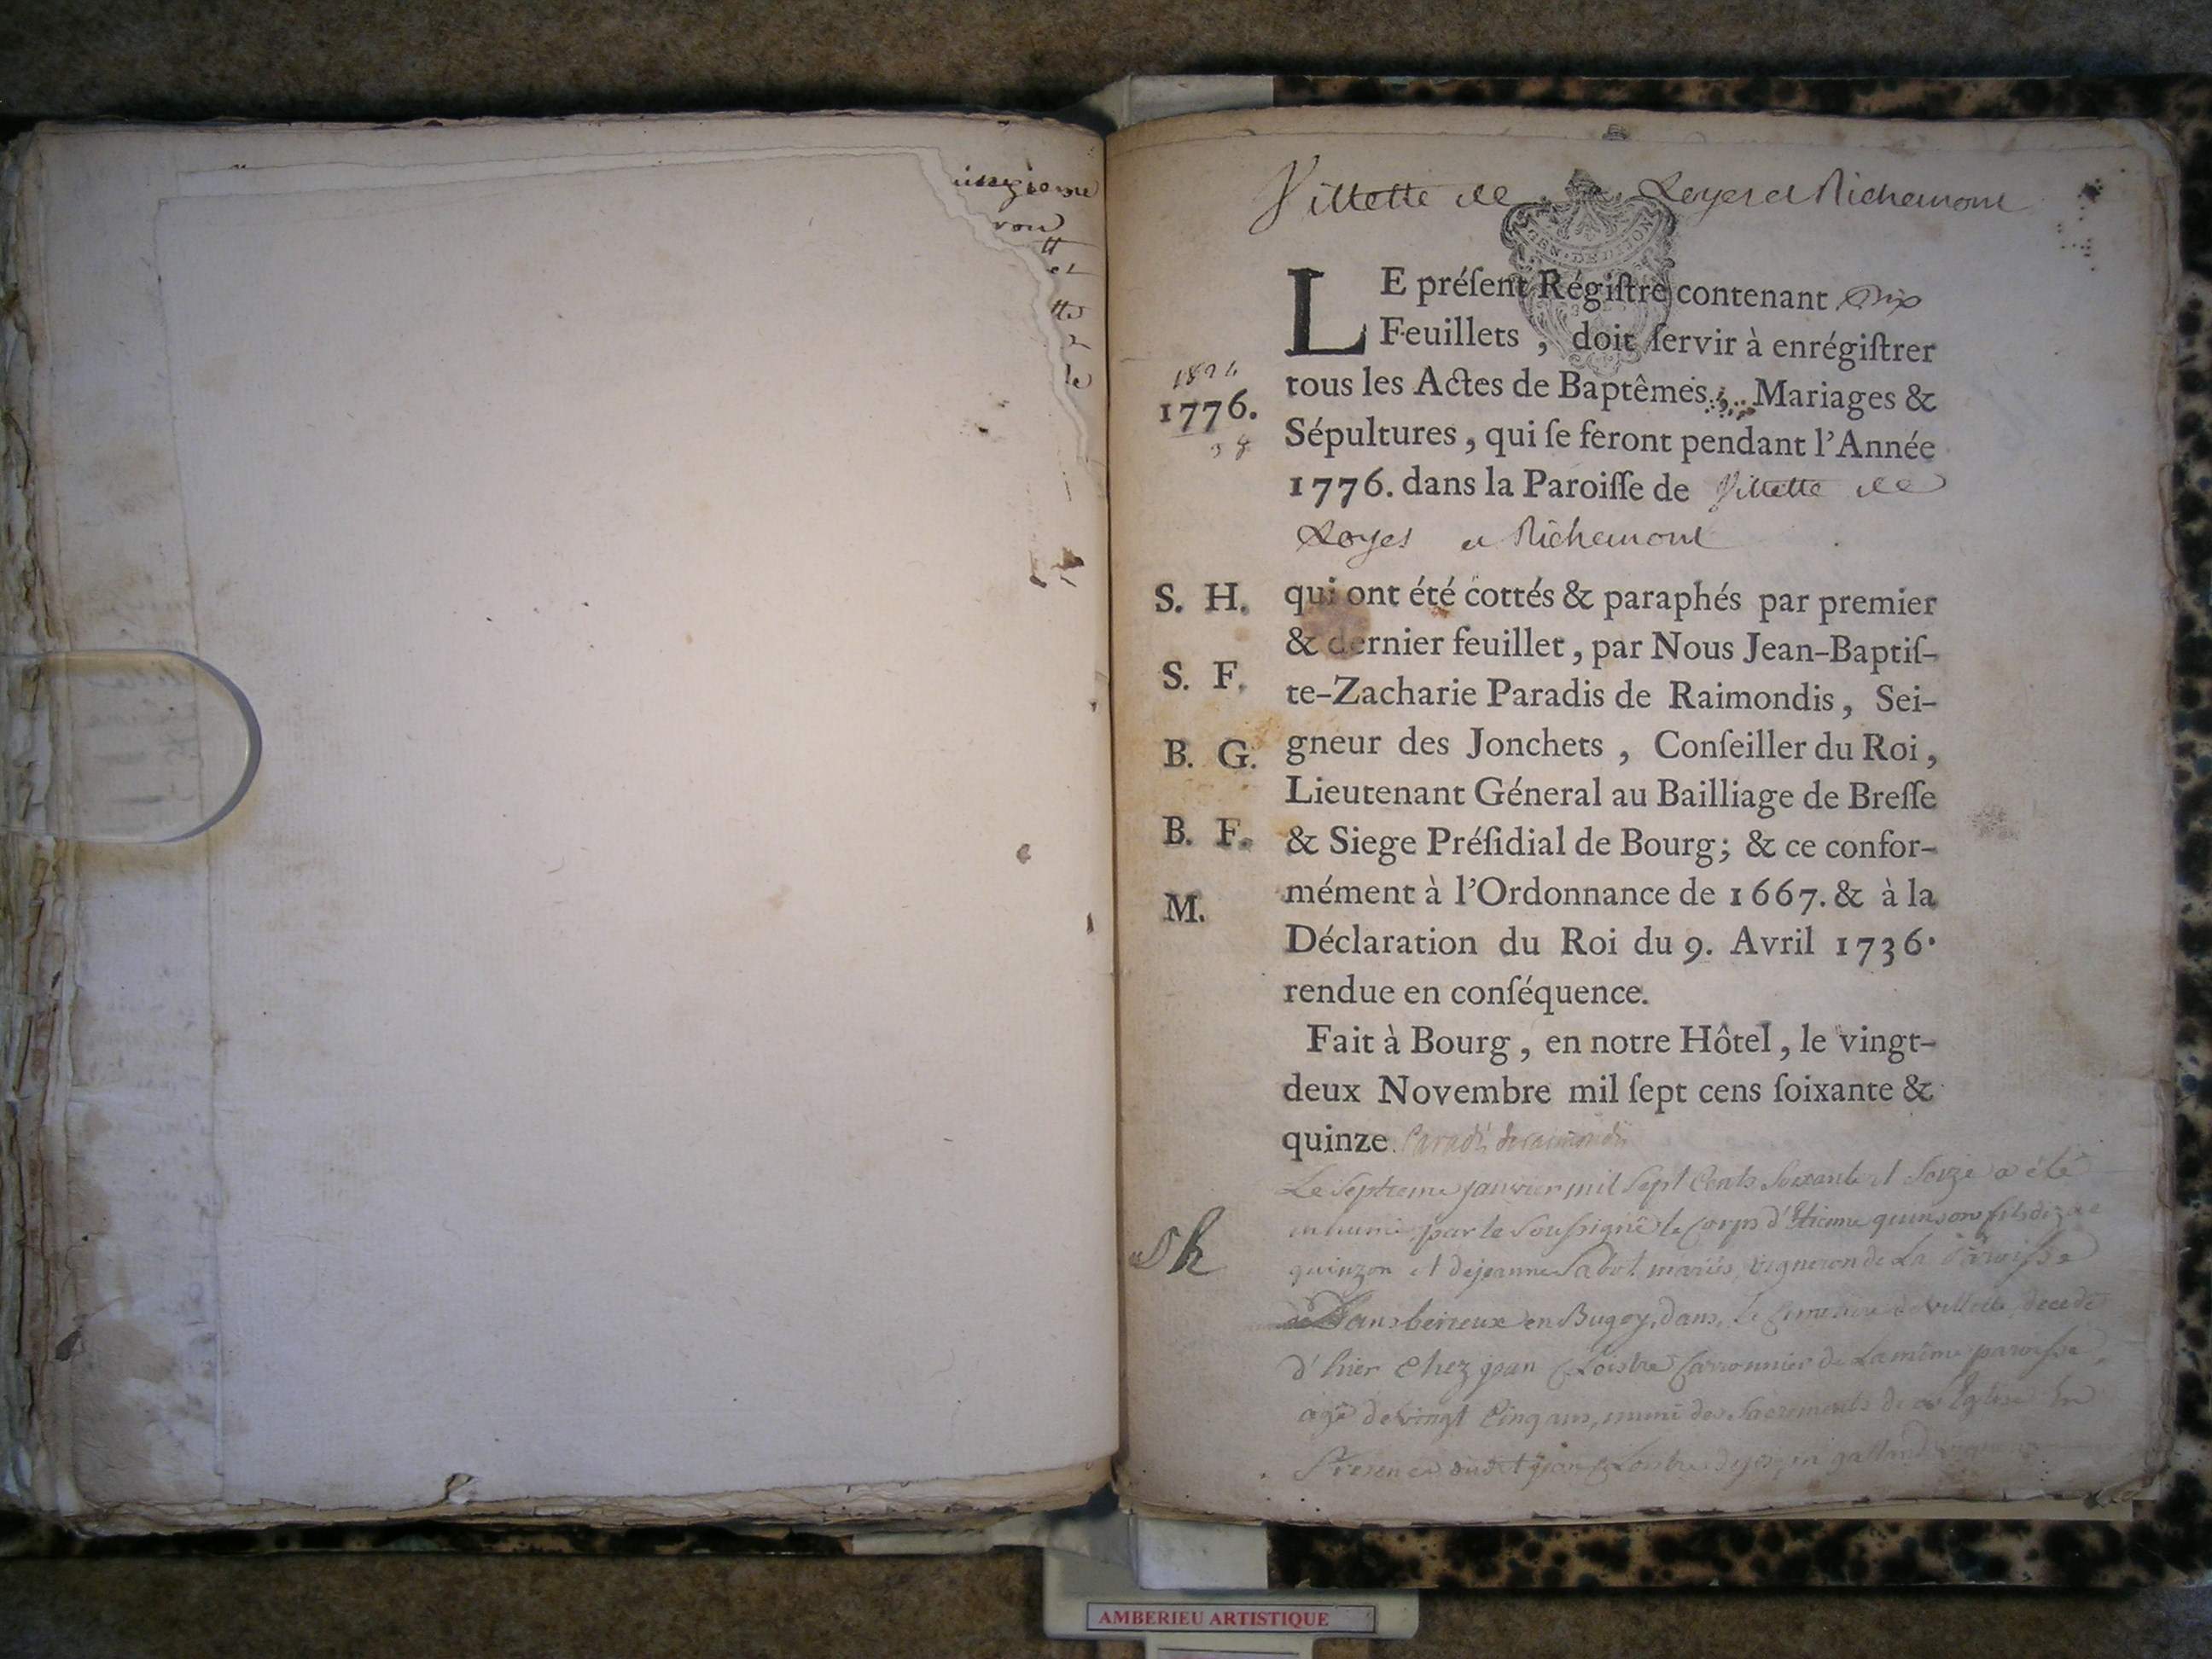 Villette de Loyes et Richemont
GEN. DE DIJON
LE préſent Régiſtre contenant Dix
Feuillets, doit ſervir à enrégiſtrer
tous les Actes de Baptêmes, Mariages &
1776.
Sépultures, qui ſe feront pendant l'Année
1776. dans la Paroiſſe de Villette de
Loyes et Richemont
S. H.
S. F.
B. G.
B. F.
M.
qui ont été cottés & paraphés par premier
& dernier feuillet, par Nous Jean-Baptiſ-
te-Zacharie Paradis de Raimondis, Sei-
gneur des Jonchets, Conſeiller du Roi,
Lieutenant Géneral au Bailliage de Breſſe
& Siege Préſidial de Bourg; & ce confor-
mément à l'Ordonnance de 1667. & à la
Déclaration du Roi du 9. Avril 1736.
rendue en conſéquence.
Fait à Bourg, en notre Hôtel, le vingt-
deux Novembre mil ſept cens ſoixante &
quinze. Paradis de raimondis
Le Septieme janvier mil Sept Cents Soixante et Seize a été
inhumé par le Soussigné le Corps d'Etienne quinson fils
Sh
quinzon et de jeanne Sabot mariés, vigneron de La Paroisse
en Bugey, dans le Cimetiere de villette decede
d'hier Chez jean Cloistre Carronnier de La même paroisse,
agé de vingt Cinq ans, muni des Sacrements de Eglise En
Presence dudit jean galland
AMBERIEU ARTISTIQUE